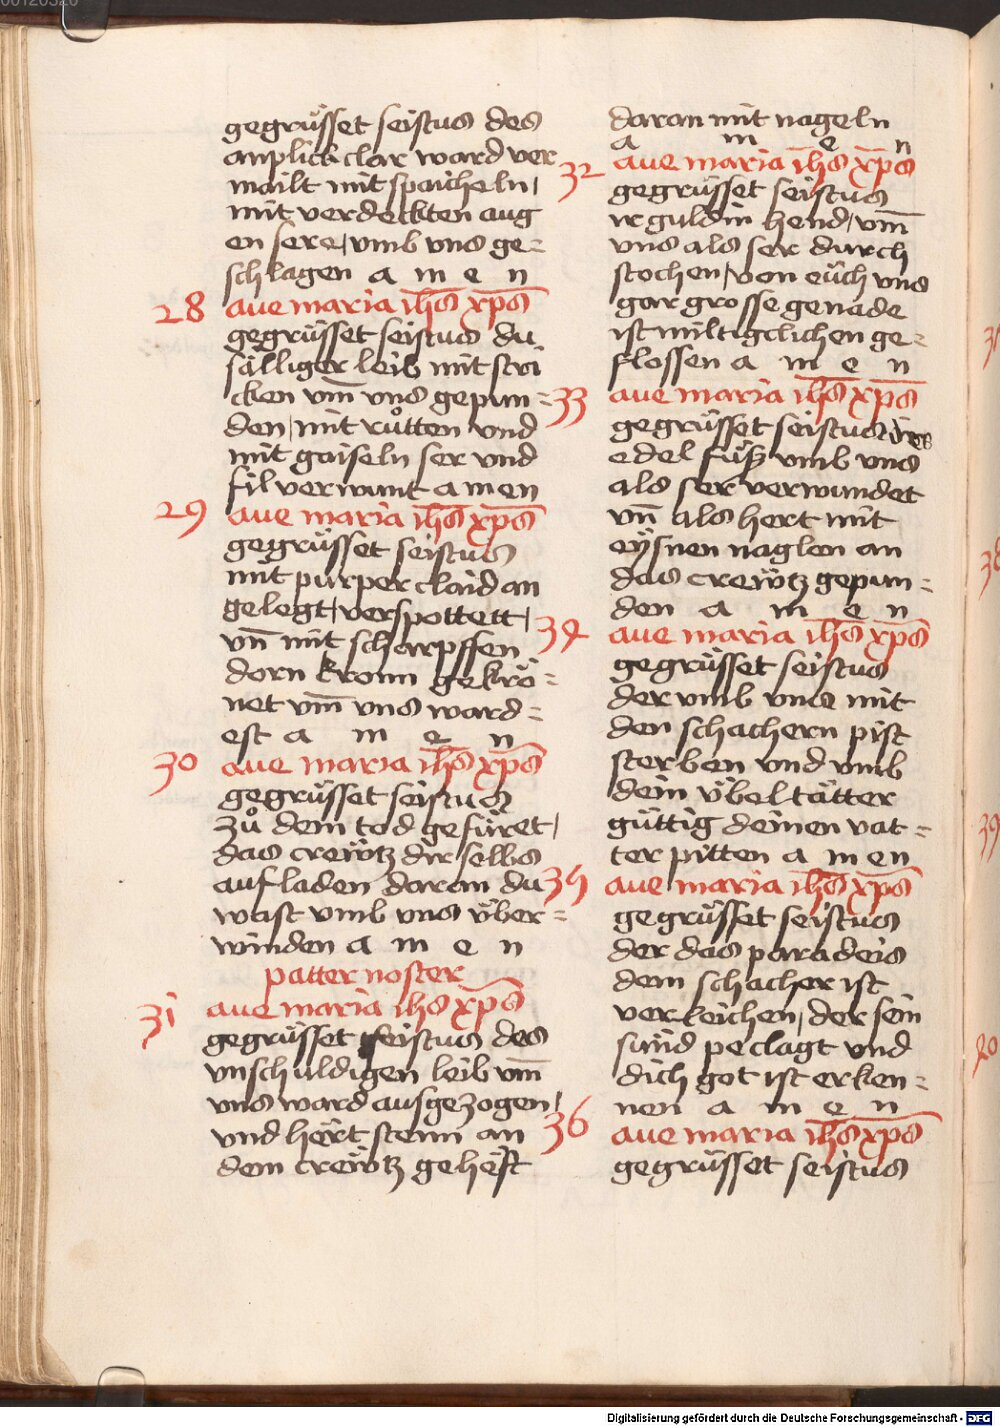 00120320
gegrüsset seistus des
anplick clar ward ver
mailt mit spaicheln,
mit verdeckten aug
en sere, vmb vns ge=
schlagen a m e n
28 aue maria ih̅s xp̅s
gegrüsset seistus du
sälliger leib mit stri
cken vm̅ vns gepun=
den, mit růtten vnd
mit gaiseln ser vnd
fil verwunt amen
29 aue maria ih̅s xp̅s
gegrüsset seistus
mit purper claid an
gelegt, verspottett,
vn̅ mit scharpffen
dorn kronn gekrö=
net vm̅ vns ward=
est a m e n
30 aue maria ih̅s xp̅s
gegrüsset seistus
zů dem tod gefüret,
das crewtz dir selbs
auf laden daran du
wast vmb vns vber=
winden a m e n
patter noster
31 aue maria ihs xp̅s
gegrüsset seistus des
vnschuldigen leib vm̅
vns ward ausgezogen,
vnd hert stenn an
dem crewtz geheft
daran mit nageln
a m e n
32 aue maria ih̅s xp̅s
gegrüsset seistus
ir guldin hend, vm̅
vns als ser durch
stochen, von eüch vns
gar grosse genade
ist miltigclichen ge=
flossen a m e n
33 aue maria ih̅s xp̅s
gegrüsset seistus ir
edel füß vmb vns
als ser verwundet
vn̅ als hert mit
eysnen naglen an
das crewtz gepun=
den a m e n
34 aue maria ih̅s xp̅s
gegrüsset seistus
der vmb vns mit
den schachern pist
sterben vnd vmb
dein vbeltätter
güttig deinen vat=
ter pitten a m en
35 aue maria ih̅s xp̅s
gegrüsset seistus
der das paradeis
dem schacher ist
verleichen, der sein
sünd peclagt vnd
dich got ist erken=
nen a m e n
36 aue maria ih̅s xp̅s
gegrüsset seistus
38
39
Digitalisierung gefördert durch die Deutsche Forschungsgemeinschaft - DFG